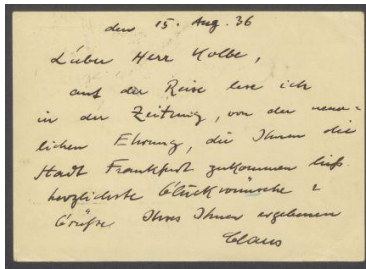 den 15. Aug. 36
Lieber Herr Kolbe,
auf der Reise lese ich
in der Zeitung, von der neuer-
lichen Ehrung, die Ihnen die
Stadt Frankfurt zukommen ließ
herzlichste Glückwünsche &
Grüße Ihres Ihnen ergebenen
Claus